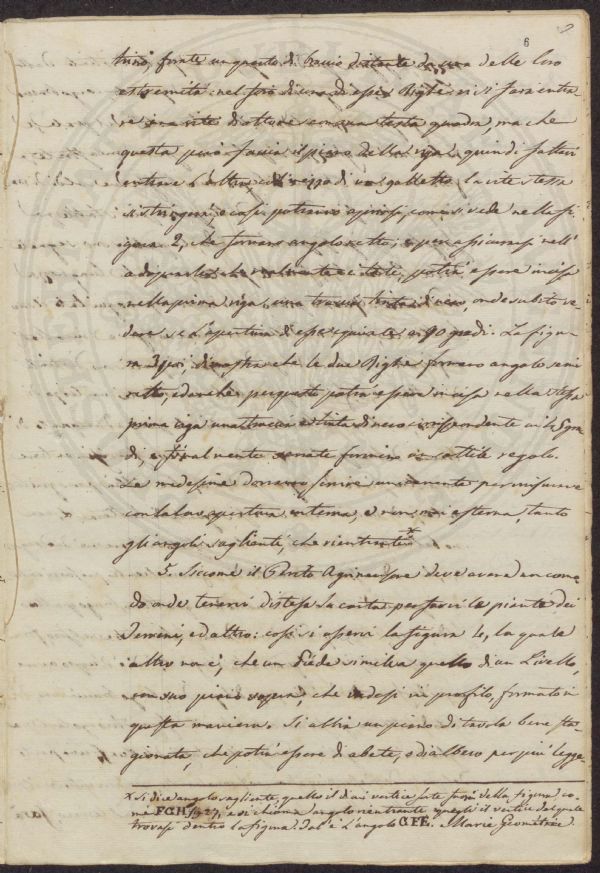 6
trino, frate un quarto di braccio distante da una delle loro
estremità: nel foro di una di esse Righe vi si farà entra-
re una vite di ottone con una testa quadra, ma che
questa però faccia il piano della riga, quindi fattavi
entrare l'altra col mezzo di un galletto, la vite stessa
si stringerà e così potranno aprirsi, come si vede nella fi-
gura 2, che formano angolo retto; e per assicurarsi nell'
adoprarle che realmente sia tale, potrà essere incisa
nella prima riga una traccia tinta di nero, onde subito ve-
dere se l'apertura di esse equivale a 90 gradi. La figu-
ra 3 poi dimostra che le due Righe formano angolo semi
retto, ed anche per questo potrà essere incisa nella stessa
prima riga una traccia e tinta di nero corrispondente ai 45 gra-
di, e finalmente serrate formino un sottile regolo.
Le medesime dovranno servire unicamente per misurare
con la loro apertura interna, e non mai esterna, tanto
gli angoli saglienti, che rientranti*
5. Siccome il Perito Agrimensore deve avere un como-
do onde tenervi distesa la carta per farvi le piante dei
Terreni, ed altro: così si osservi la figura 4, la quale
altro non è, che un Piede simile a quello di un Livello,
con suo piano sopra, che vedesi in profilo, formato in
questa maniera. Si abbia un piano di tavola bene sta-
gionata, che potrà essere di abete, o di albero per più legge-
* Si dice angolo sagliente, quello il di cui vertice sta fuori della figura co-
me FGH fig 27, e si chiama angolo rientrante quello il vertice del quale
trovasi dentro la figura. Tal'è l'angolo GFE. Marie Geometria